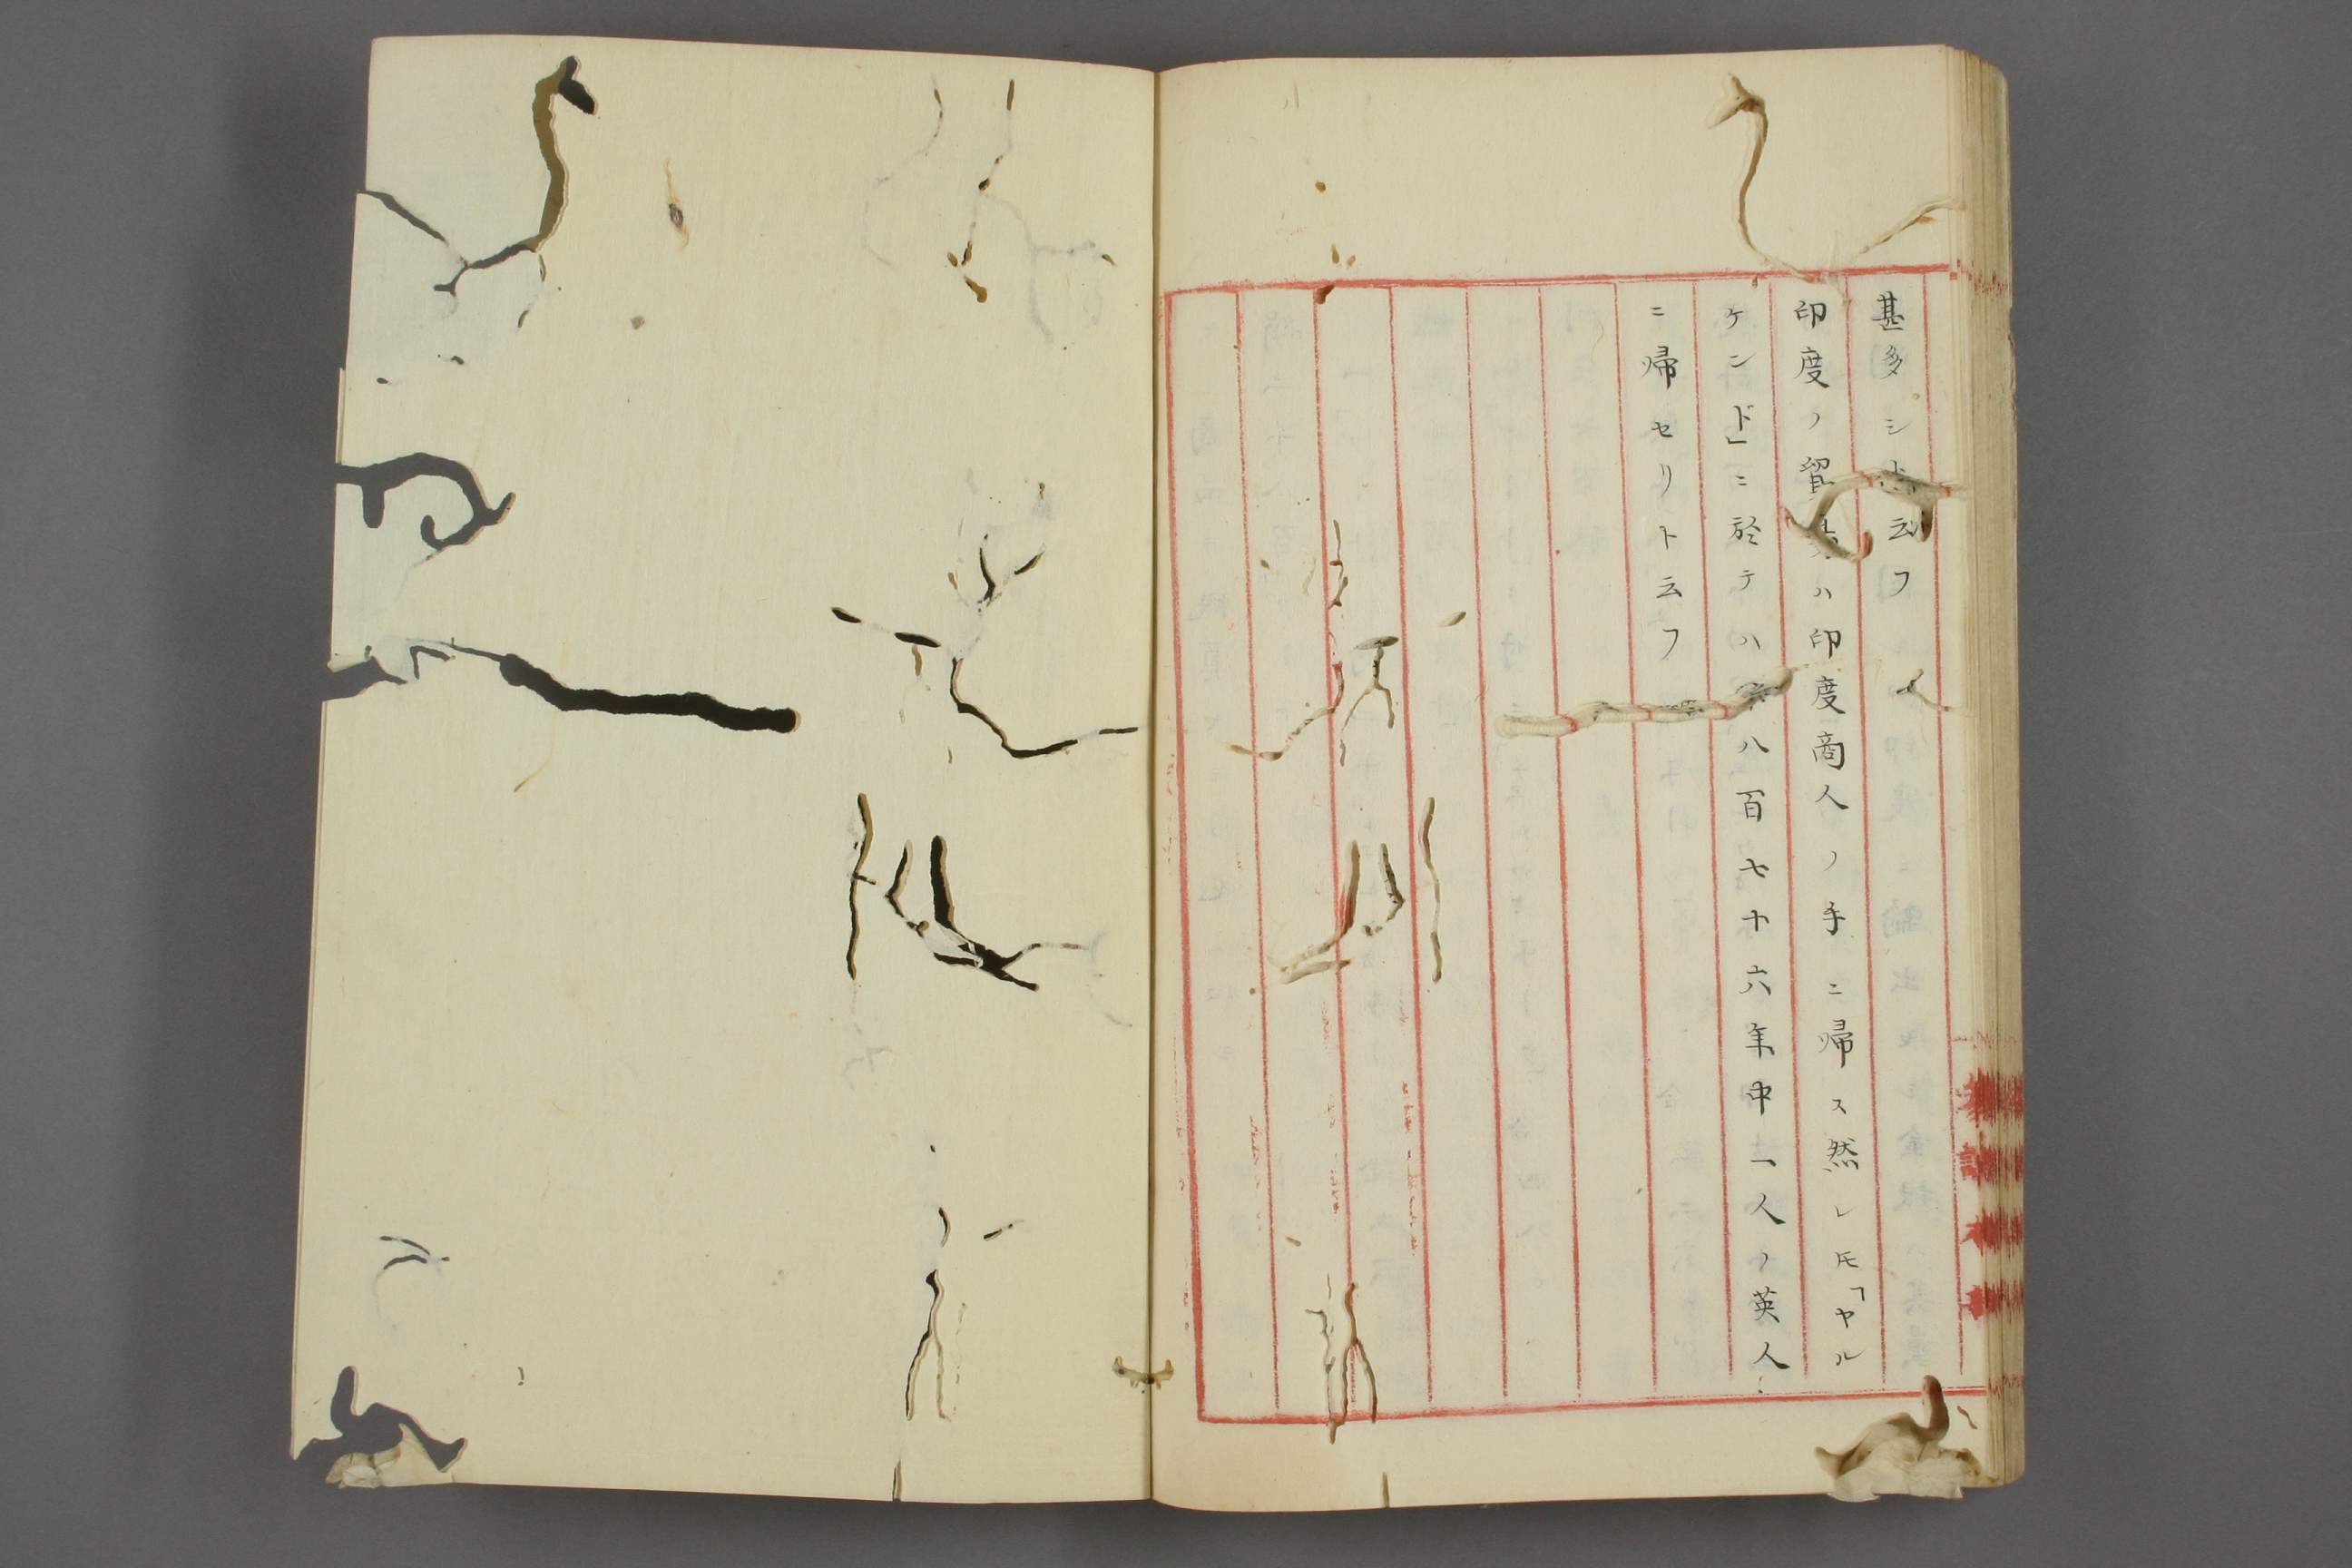 甚多シト云フ
印度ノ貿易ハ印度商人ノ手ニ帰ス然レ𪜈「ヤル
ケンド」ニ於テハ千八百七十六年中一人ノ英人
ニ帰セリト云フ